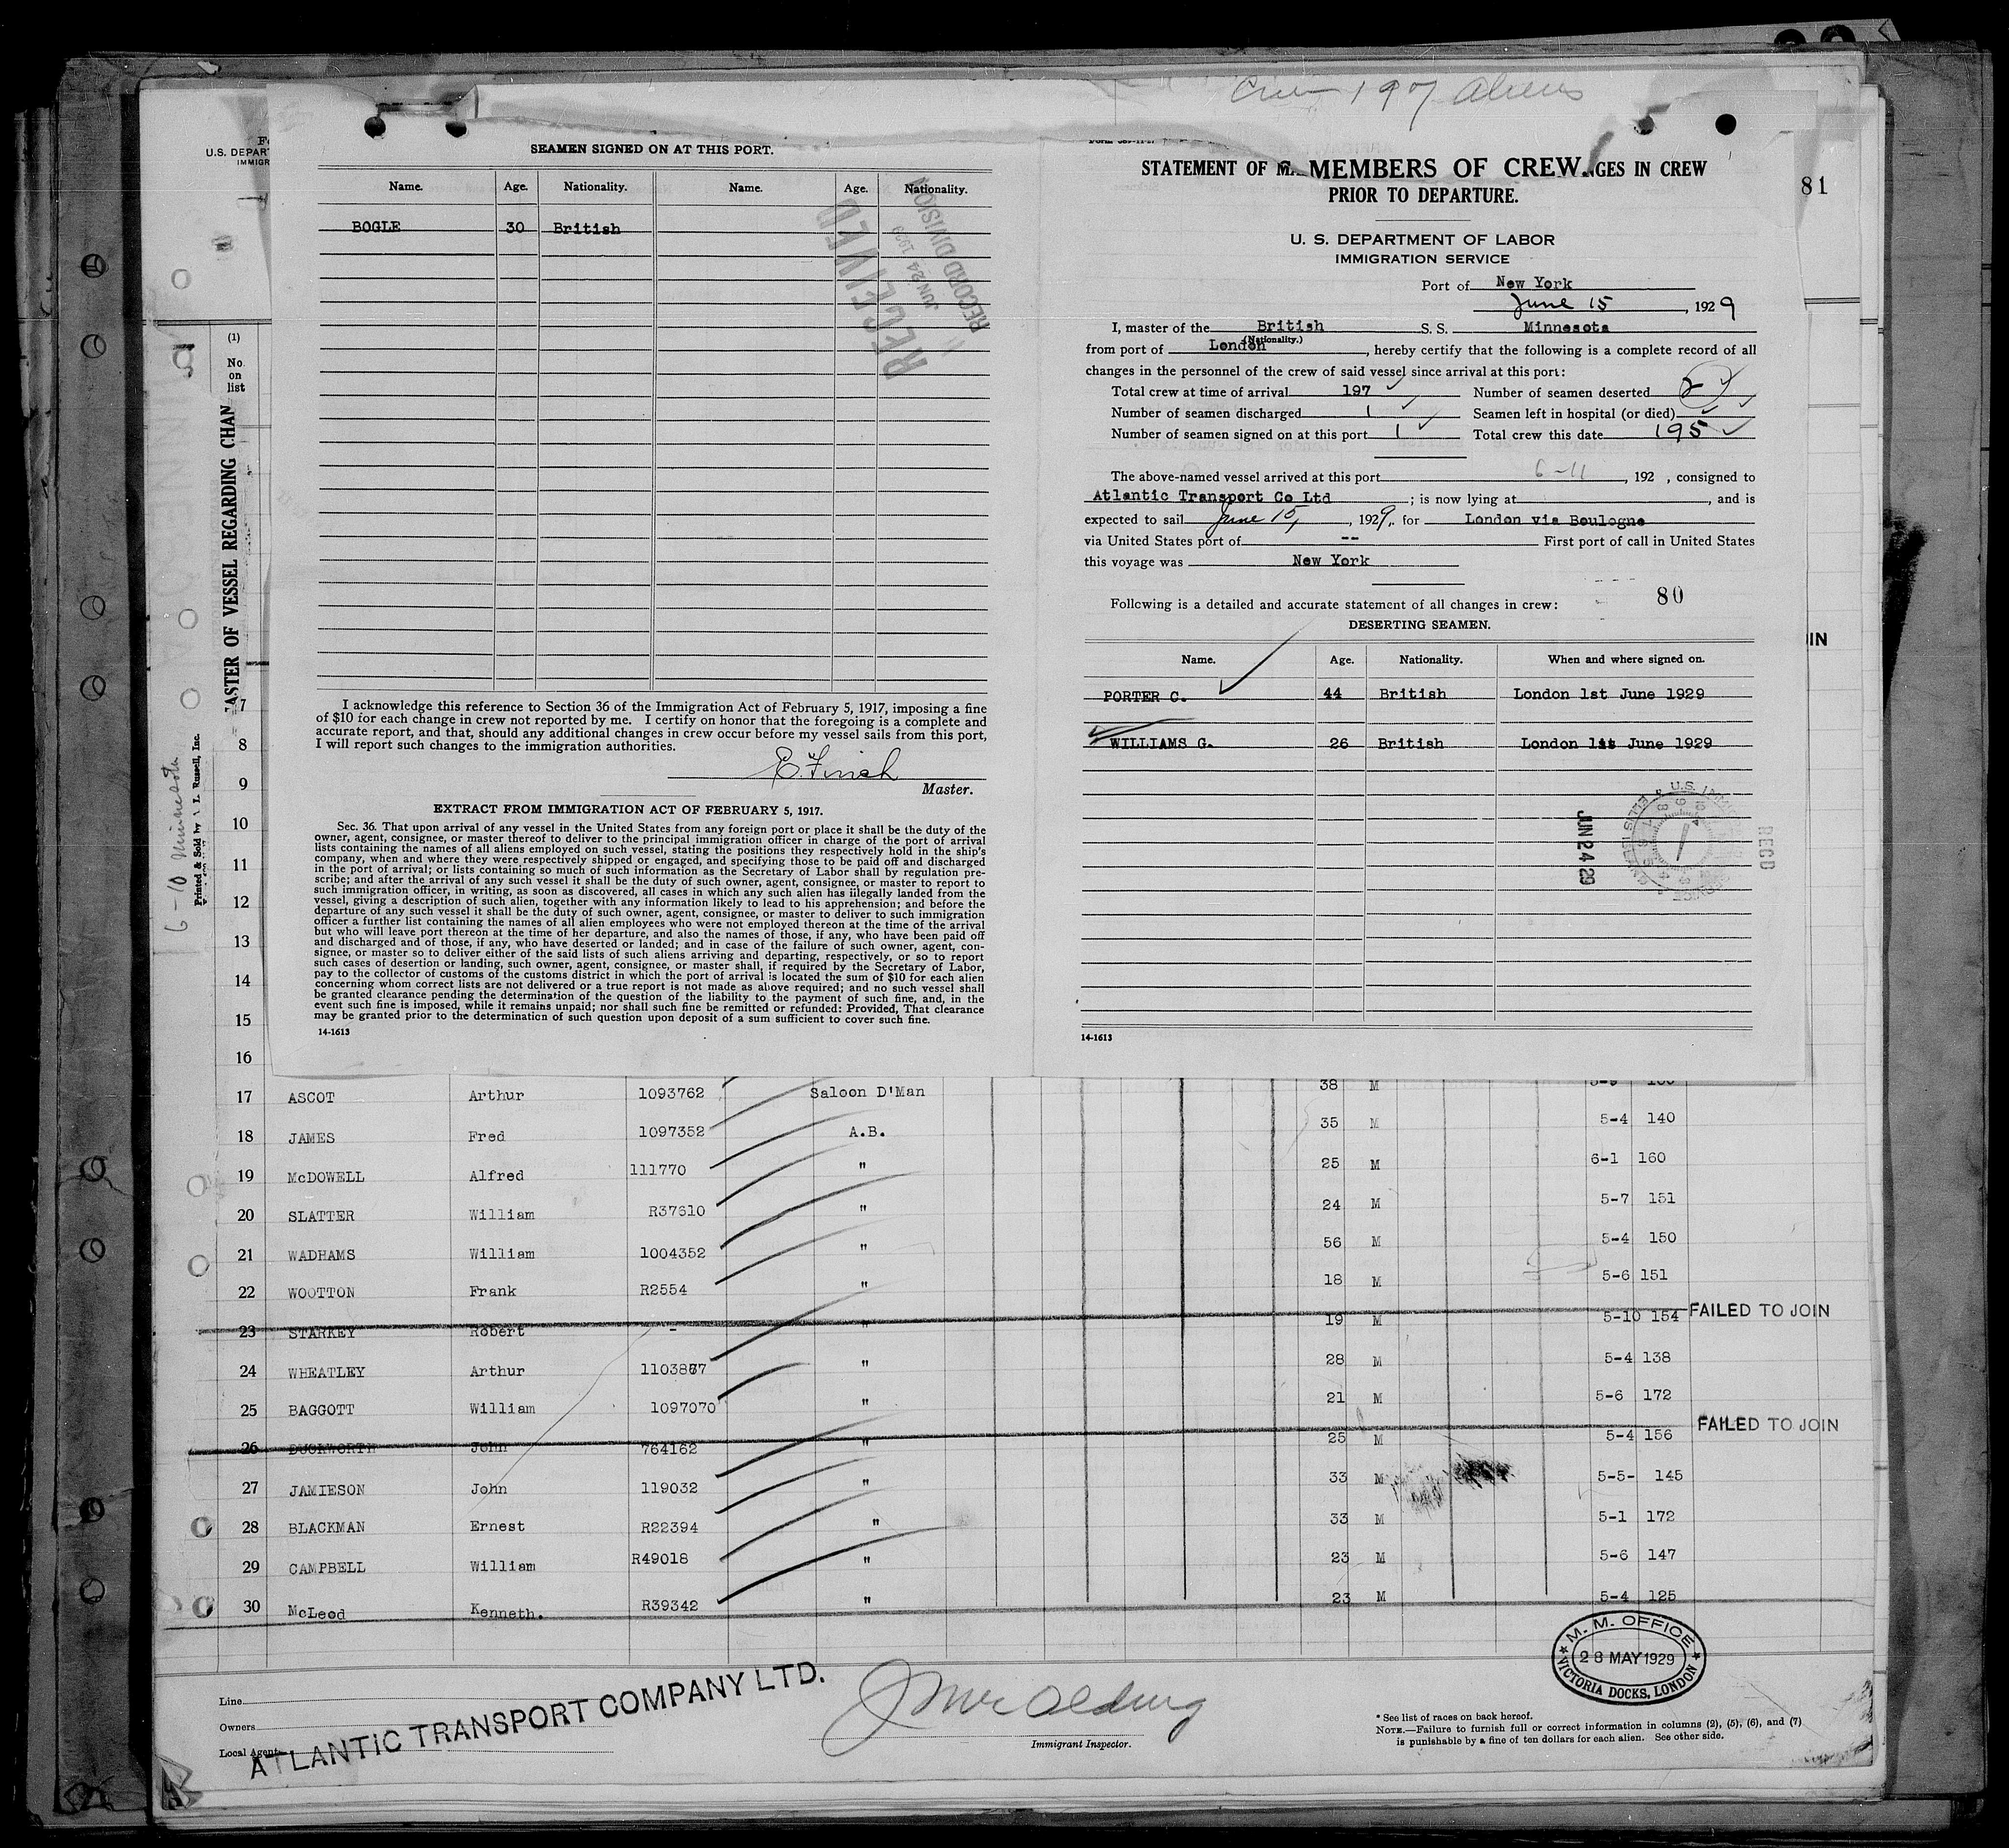 Crew 197 Aliens
U.S. DEPAR
IMMIGR
81
(1)
No.
on
list
ASTER OF VESSEL REGARDING CHAN
Printed & Sold by L. Russell, Inc.
6-10 Minnesota
SEAMEN SIGNED ON AT THIS PORT.
Name. Age. Nationality. Name. Age. Nationality.
BOGLE 30 British
RECEIVED
JUN 24 1929
RECORD DIVISION
I acknowledge this reference to Section 36 of the Immigration Act of February 5, 1917, imposing a fine
of $10 for each change in crew not reported by me. I certify on honor that the foregoing is a complete and
accurate report, and that, should any additional changes in crew occur before my vessel sails from this port,
I will report such changes to the immigration authorities.
E. Finch
Master.
EXTRACT FROM IMMIGRATION ACT OF FEBRUARY 5, 1917.
Sec. 36. That upon arrival of any vessel in the United States from any foreign port or place it shall be the duty of the
owner, agent, consignee, or master thereof to deliver to the principal immigration officer in charge of the port of arrival
lists containing the names of all aliens employed on such vessel, stating the positions they respectively hold in the ship's
company, when and where they were respectively shipped or engaged, and specifying those to be paid off and discharged
in the port of arrival; or lists containing so much of such information as the Secretary of Labor shall by regulation pre-
scribe; and after the arrival of any such vessel it shall be the duty of such owner, agent, consignee, or master to report to
such immigration officer, in writing, as soon as discovered, all cases in which any such alien has illegally landed from the
vessel, giving a description of such alien, together with any information likely to lead to his apprehension; and before the
departure of any such vessel it shall be the duty of such owner, agent, consignee, or master to deliver to such immigration
officer a further list containing the names of all alien employees who were not employed thereon at the time of the arrival
but who will leave port thereon at the time of her departure, and also the names of those, if any, who have been paid off
and discharged and of those, if any, who have deserted or landed; and in case of the failure of such owner, agent, con-
signee, or master so to deliver either of the said lists of such aliens arriving and departing, respectively, or so to report
such cases of desertion or landing, such owner, agent, consignee, or master shall, if required by the Secretary of Labor,
pay to the collector of customs of the customs district in which the port of arrival is located the sum of $10 for each alien
concerning whom correct lists are not delivered or a true report is not made as above required; and no such vessel shall
be granted clearance pending the determination of the question of the liability to the payment of such fine, and, in the
event such fine is imposed, while it remains unpaid; nor shall such fine be remitted or refunded: Provided, That clearance
may be granted prior to the determination of such question upon deposit of a sum sufficient to cover such fine.
14-1613
STATEMENT OF MEMBERS OF CREW GES IN CREW
PRIOR TO DEPARTURE.
U. S. DEPARTMENT OF LABOR
IMMIGRATION SERVICE
Port of New York
June 15, 1929
I, master of the British S. S. Minnesota
(Nationality.)
from port of London, hereby certify that the following is a complete record of all
changes in the personnel of the crew of said vessel since arrival at this port:
Total crew at time of arrival 197 Number of seamen deserted 2
Number of seamen discharged 1 Seamen left in hospital (or died)
Number of seamen signed on at this port 1 Total crew this date 195
The above-named vessel arrived at this port 6-11, 192 , consigned to
Atlantic Transport Co Ltd ; is now lying at , and is
expected to sail June 15, 1929, for London via Boulogne
via United States port of -- First port of call in United States
this voyage was New York
80
Following is a detailed and accurate statement of all changes in crew:
DESERTING SEAMEN.
Name. Age. Nationality. When and where signed on.
PORTER C. 44 British London 1st June 1929
WILLIAMS G. 26 British London 1st June 1929
JUN 24 29
RECD
14-1613
IN
7
8
9
10
11
12
13
14
15
16
17 ASCOT Arthur 1093762 Saloon D'Man 38 M
18 JAMES Fred 1097352 A.B. 35 M 5-4 140
19 McDOWELL Alfred 111770 " 25 M 6-1 160
20 SLATTER William R37610 " 24 M 5-7 151
21 WADHAMS William 1004352 " 56 M 5-4 150
22 WOOTTON Frank R2554 " 18 M 5-6 151
23 STARKEY Robert - " 19 M 5-10 154 FAILED TO JOIN
24 WHEATLEY Arthur 1103867 " 28 M 5-4 138
25 BAGGOTT William 1097070 " 21 M 5-6 172
26 DUCKWORTH John 764162 " 25 M 5-4 156 FAILED TO JOIN
27 JAMIESON John 119032 " 33 M 5-5- 145
28 BLACKMAN Ernest R22394 " 33 M 5-1 172
29 CAMPBELL William R49018 " 23 M 5-6 147
30 McLeod Kenneth. R39342 " 23 M 5-4 125
M. M. OFFICE
28 MAY 1929
VICTORIA DOCKS, LONDON
Line
Owners
Local Agents
ATLANTIC TRANSPORT COMPANY LTD.
Immigrant Inspector.
* See list of races on back hereof.
NOTE.—Failure to furnish full or correct information in columns (2), (5), (6), and (7)
is punishable by a fine of ten dollars for each alien. See other side.